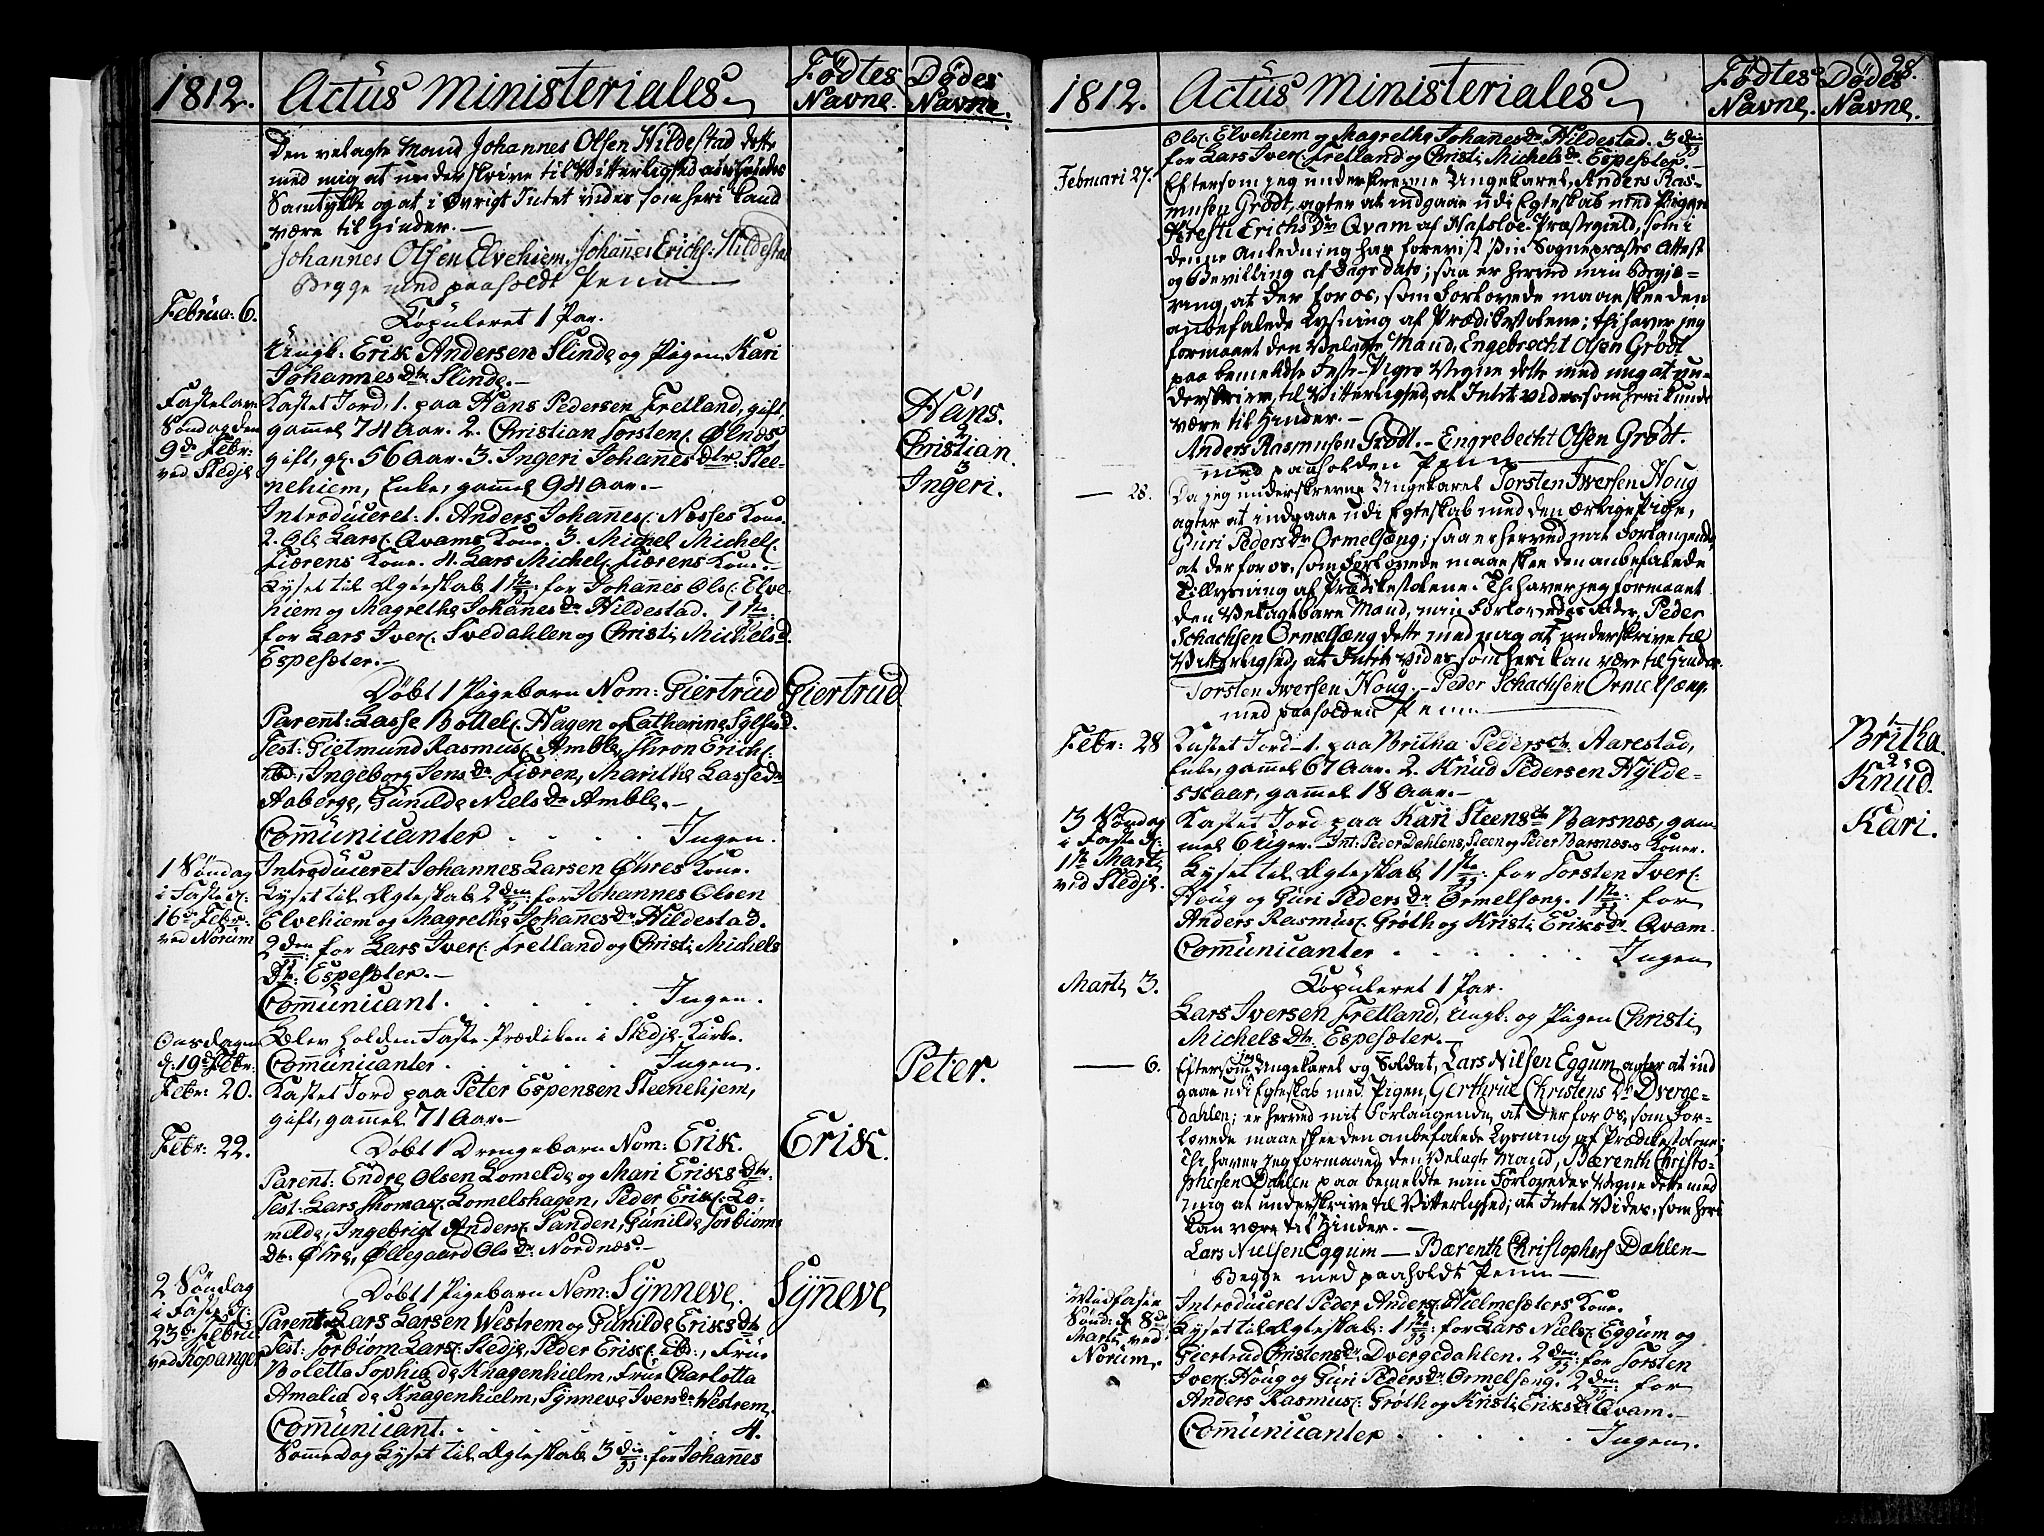 1812. Actus Ministeriales. Födtes Navne. Dödes Navne.
Den velagte Mand Johannes Olsen Hildestad dette
med mig at underskrive til Vitterlighed at
Samtykke og at i Øvrigt Intet vides som heri kand
være til Hinder.
Johannes Olsen Elvehiem, Johannes Erichs: Hildestad
Begge med paaholdt Penn
Februa: 6. Copuleret 1 Par.
Ungk: Erik Andersen Slinde og Pigen Kari
Johannes Dtr Slinde.
Fastelavn Kastet Jord, 1. paa Hans Pedersen Fretland, gift, Hans.
Söndag den gammel 74 Aar. 2. Christian Torsten: Ølnes 2 Christian.
9de Febr: gift, gl: 56 Aar. 3. Ingeri Johannes dtr Stee- 3
ved Stedje nehiem, Enke, gammel 94 Aar. Ingeri.
Introduceret: 1. Anders Johannes: Nesses Kone.
2. Ole Lars: Qvams Kone. 3. Michel Michel:
Fiærens Kone. 4. Lars Michel: Fiærens Kone.
Lyset til Ægteskab 1ste: for Johannes Ols: Elve-
hiem og Magrethe Johannes dr Hildestad. 1ste:
for Lars Iver: Svedahlen og Christi Michels d.
Espesæter.
Döbt 1 Pigebarn Nom: Giertrud Giertrud.
Parent: Lasse Bottel: Hagen og Catharine
Test: Gietmund Rasmus: Amble, Thron Erich:
ibd:, Ingeborg Jens dr Fiæren, Marithe Lasse dr
Aaberge, Gunilde Niels dr Amble.
Communicanter . . . . Ingen.
1 Söndag Introduceret Johannes Larsen Øhres Kone.
i Faste d: Lyset til Ægteskab 2den: for Johannes Olsen
16de Febr: Elvehiem og Magrethe Johannes dr Hildestad.
ved Norum 2den: for Lars Iver: Fretland og Christi Michels
Dtr: Espesæter.
Communicant. . . . . Ingen.
Onsdagen Blev holden Faste-Prædiken i Stedje Kirke.
d: 19de Febr: Communicanter . . . . Ingen.
Febr: 20. Kastet Jord paa Peter Espensen Steenehjem, Peter.
gift, gammel 71 Aar.
Febr: 22. Döbt 1 Drengebarn Nom: Erik. Erik.
Parent: Endre Olsen Lomelde og Mari Eriks Dtr
Test: Lars Thomas: Lomelshagen, Peder Erik: Lo-
melde, Ingebrigt Anders: Sanden, Gunilde Torbiörns
Dtr: Øhre, Øllegaard Ols dr Nordnæs.
2 Söndag Döbt 1 Pigebarn Nom: Synneve. Synneve
i Faste d: Parent: Lars Larsen Westrem og Gunilde Eriks dtr
23de Febru Test: Torbiörn Lars: Stedje, Peder Erik: ibd:, Frue
ved Kopanger Boletta Sophia de Knagenhielm, Frue Charlotta
Amalia de Knagenhielm, Synneve Ivers dr Westrem.
Communicant. . . . . 4.
Samme Dag Lyset til Ægteskab 3die: for Johannes
28.
1812. Actus Ministeriales. Födtes Navne. Döde Navne.
Ols: Elvehiem og Magrethe Johannes dr Hildestad. 3die
for Lars Iver: Fretland og Christi Michels dr Espesæter.
Februari 27. Eftersom jeg underskrevne Ungekarel, Anders Ras-
musen Grödt, agter at indgaae udi Egteskab med Pigen
Kresti Erichs Dr Qvam af Hafsloe-Præstegield, som i
denne Anledning har forevist sin Sognepræstes Attest
og Bevilling af Dags Dato; saa er herved min Begjæ-
ring, at der for os, som Forlovede maae skee den
anbefalede Lysning af Prædikestolene; thi haver jeg
formaaet den Velagte Mand, Engebrecht Olsen Grödt
paa bemeldte Feste-Piges Vegne dette med mig at un-
derskrive, til Vitterlighed, at Intet vides som heri kunde
være til Hinder.
Anders Rasmusen Grödt. - Engrebecht Olsen Grödt.
med paaholden Penn
— 28. Da jeg underskrevne Ungekarel Torsten Iwersen Houg
agter at indgaae udi Egteskab med den ærlige Pige,
Guri Peders Dr Ormelsæng; saa er herved mit Forlangende,
at der for os, som Forlovede maae skee den anbefalede
Tillysning af Prædikestolene. Thi haver jeg formaaet
den Velagtbare Mand, min Forlovedes Fader, Peder
Schachsen Ormelsæng dette med mig at underskrive til
Vitterlighed, at Intet vides som heri kan være til Hinder.
Torsten Iwersen Houg. - Peder Schachsen Ormelsæng.
med paaholden Penn
Febr: 28 Kastet Jord 1. paa Britha Peders dtr Aarestad, 1 Britha.
Enke, gammel 67 Aar. 2. Knud Pedersen Hylde- 2 Knud.
skaar, gammel 18 Aar.
3 Söndag Kastet Jord paa Kari Steens dtr Barsnæs, gam- Kari.
i Faste d: mel 6 Uger. Int: Peder Dahlens, Steen og Peder Barsnæs's Koner.
1ste Martii Lyset til Ægteskab 1ste: for Torsten Iver:
ved Stedje. Houg og Guri Peders Dr Ormelsæng. 1ste: for
Anders Rasmus: Gröth og Kristi Eriks dr Qvam.
Communicanter . . . . . Ingen
Martii 3. Copuleret 1 Par.
Lars Iversen Fretland, Ungk: og Pigen Christi
Michels Dtr: Espesæter.
— 6. Eftersom jeg Ungekarel og Soldat, Lars Nilsen Eggum agter at ind
gaae udi Egteskab med Pigen, Gerthrue Christens Dr Dverge-
dahlen; er herved mit Forlangende, at der for os, som For-
lovede maae skee den anbefalede Lysning af Prædikestolene;
Thi haver jeg formaaed den Velagte Mand, Bærenth Christo-
phersen Dahlen paa bemeldte min Forlovedes Vegne dette med
mig at underskrive til Vitterlighed; at Intet Vides, som heri
kan være til Hinder.
Lars Nielsen Eggum — Bærenth Christophers Dahlen
Begge med paaholdt Penn
Midfaste Introduceret Peder Anders: Hielmesæters Kone.
Sönd: d 8de Lyset til Ægteskab: 1ste: for Lars Niels: Eggum og
Martii ved Giertrud Christens dr Dvergedahlen. 2den: for Torsten
Norum. Iver: Houg og Guri Peders dr Ormelsæng. 2den: for
Anders Rasmus: Gröth og Kristi Eriks dr Qvam.
Communicanter . . . . . Ingen.